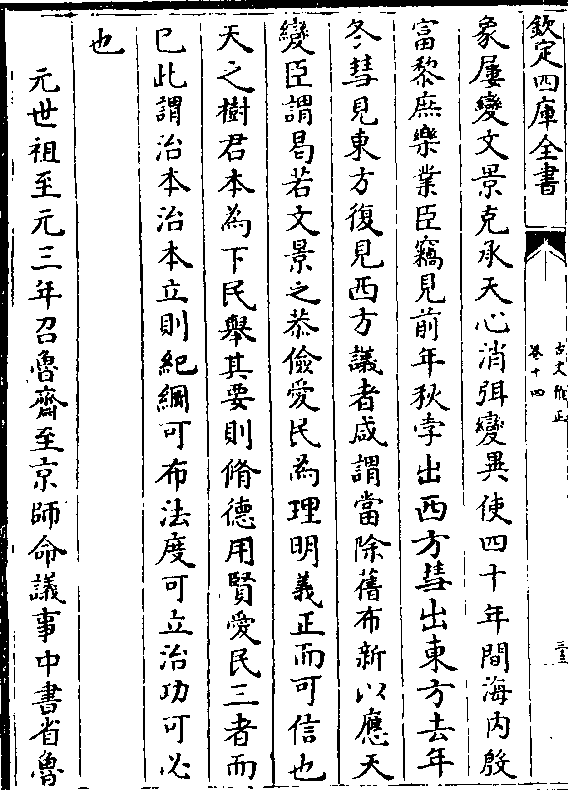 欽定四庫全書
古文雅正
卷十四
象屢變文景克承天心消弭變異使四十年間海内殷
富黎庶樂業臣竊見前年秋孛出西方彗出東方去年
冬彗見東方復見西方議者咸謂當除舊布新以應天
變臣謂曷若文景之恭儉愛民為理明義正而可信也
天之樹君本為下民舉其要則脩德用賢愛民三者而
已此謂治本治本立則紀綱可布法度可立治功可必
也
元世祖至元三年召魯齋至京師命議事中書省魯